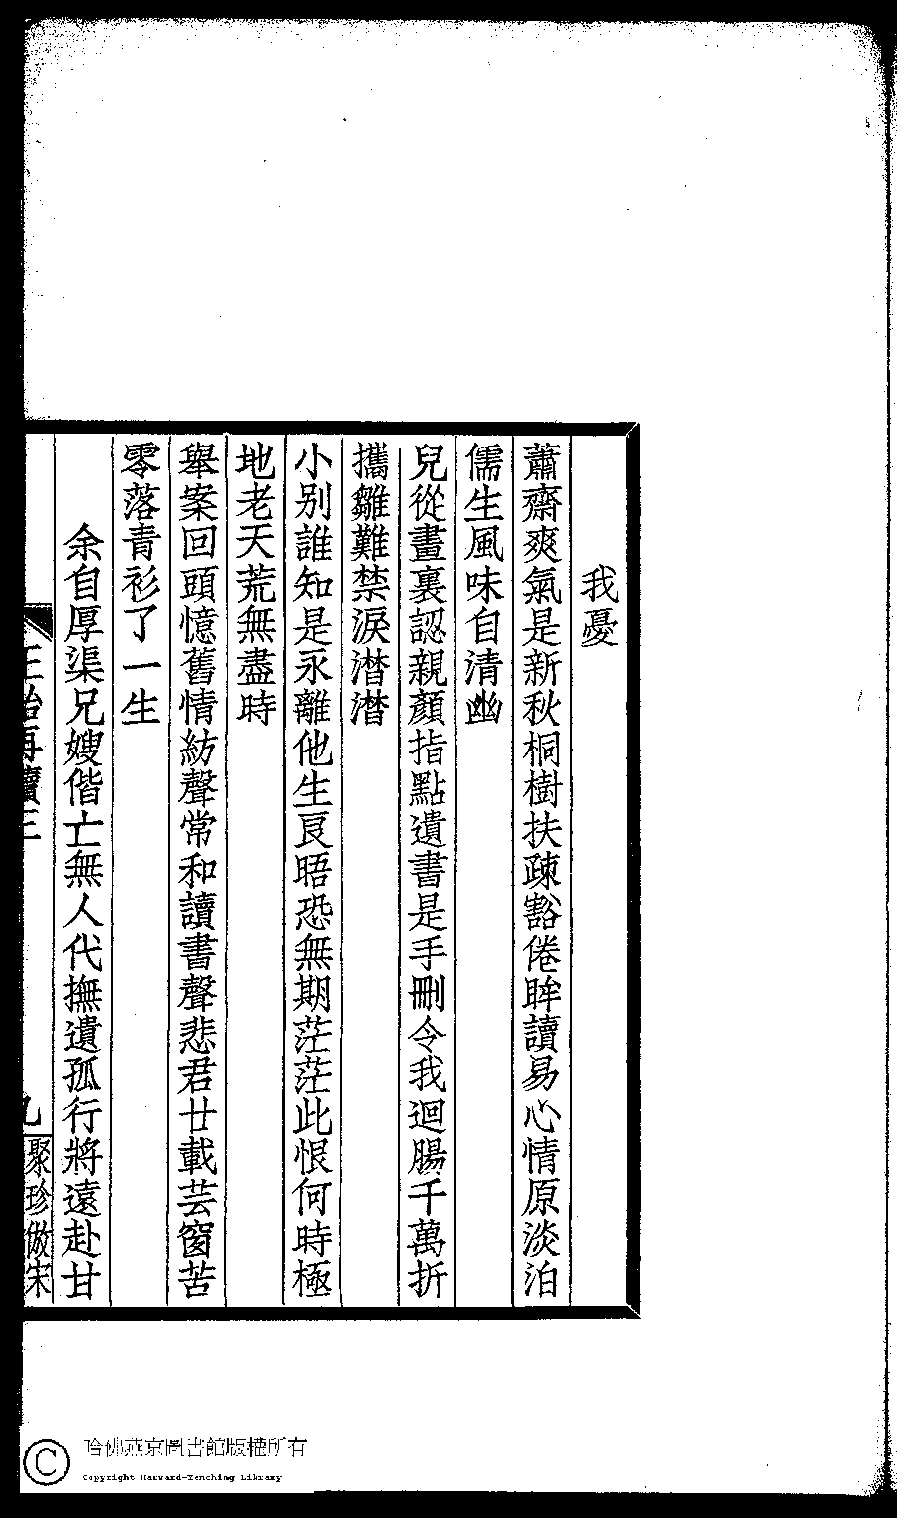 我憂
蕭齋爽氣是新秋桐樹扶疎豁倦眸讀易心情原淡泊
儒生風味自清幽
兒從畫裏認親顏指點遺書是手刪令我迴腸千萬折
攜雛難禁淚潸潸
小別誰知是永離他生良晤恐無期茫茫此恨何時極
地老天荒無盡時
舉案回頭憶舊情紡聲常和讀書聲悲君廿載芸窗苦
零落青衫了一生
余自厚渠兄嫂偕亡無人代撫遺孤行將遠赴甘
聚珍倣宋
哈佛燕京圖書館版權所有
Copyright Harvard-Yenching Library